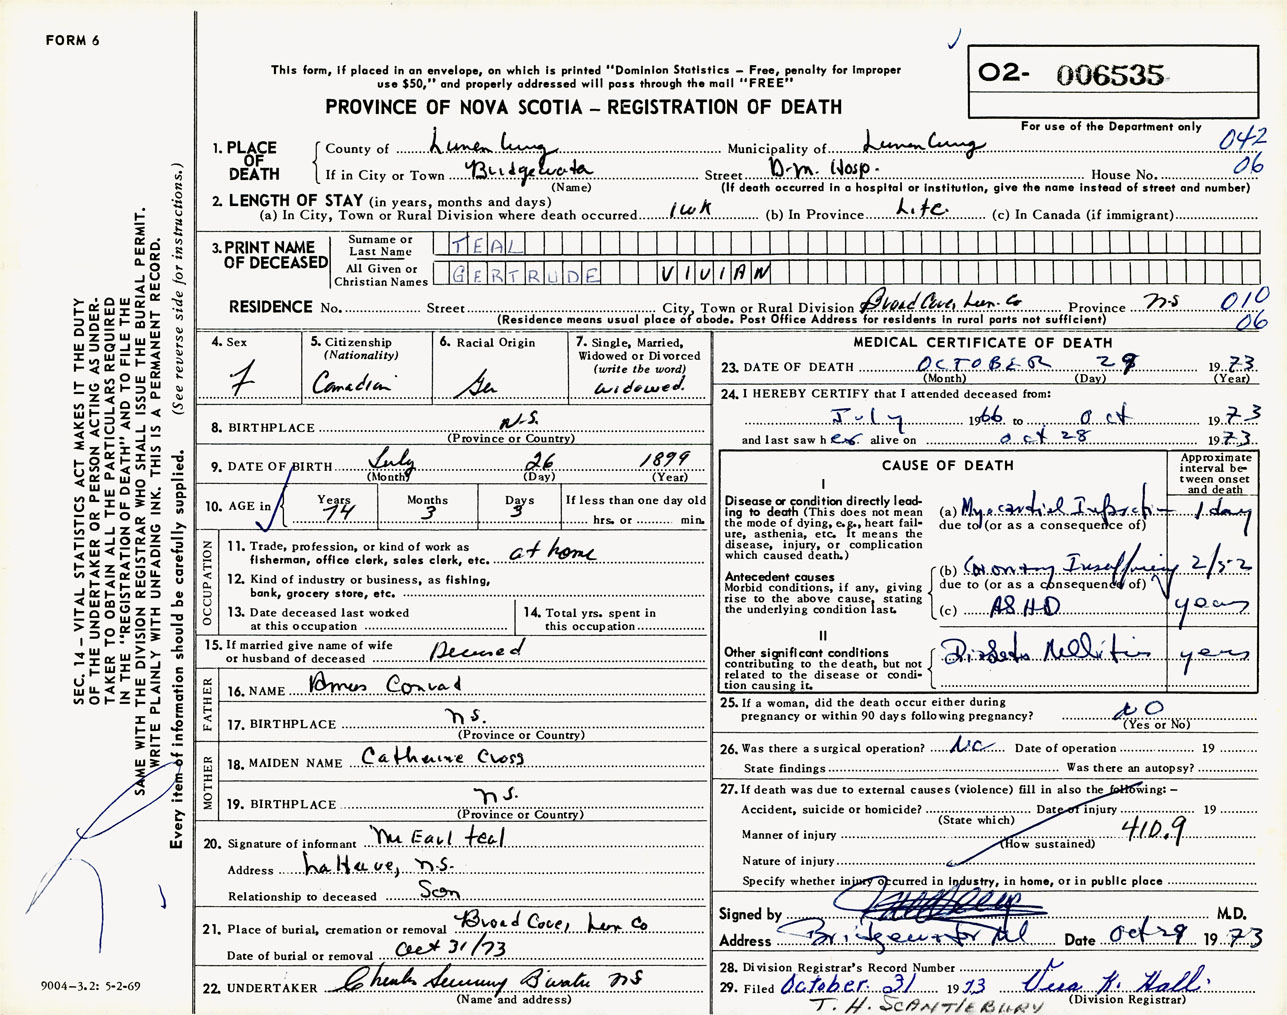 FORM 6
This form, if placed in an envelope, on which is printed "Dominion Statistics – Free, penalty for improper
use $50," and properly addressed will pass through the mail "FREE"
PROVINCE OF NOVA SCOTIA – REGISTRATION OF DEATH
02- 006535
For use of the Department only
042
06
1. PLACE OF DEATH
County of Lunenburg Municipality of Lunenburg
If in City or Town Bridgewater Street D.M. Hosp. House No.
(Name) (If death occurred in a hospital or institution, give the name instead of street and number)
2. LENGTH OF STAY (in years, months and days)
(a) In City, Town or Rural Division where death occurred 1 wk (b) In Province Life (c) In Canada (if immigrant)
3. PRINT NAME OF DECEASED
Surname or Last Name TEAL
All Given or Christian Names GERTRUDE VIVIAN
RESIDENCE No. Street City, Town or Rural Division Broad Cove, Lun. Co Province N.S 010
(Residence means usual place of abode. Post Office Address for residents in rural parts not sufficient) 06
4. Sex F
5. Citizenship (Nationality) Canadian
6. Racial Origin Ger
7. Single, Married, Widowed or Divorced (write the word) widowed.
8. BIRTHPLACE N.S.
(Province or Country)
9. DATE OF BIRTH July 26 1899
(Month) (Day) (Year)
10. AGE in Years 74 Months 3 Days 3 If less than one day old hrs. or min.
OCCUPATION
11. Trade, profession, or kind of work as
fisherman, office clerk, sales clerk, etc. at home
12. Kind of industry or business, as fishing,
bank, grocery store, etc.
13. Date deceased last worked
at this occupation
14. Total yrs. spent in
this occupation
15. If married give name of wife
or husband of deceased Deceased
FATHER
16. NAME Amos Conrad
17. BIRTHPLACE N.S.
(Province or Country)
MOTHER
18. MAIDEN NAME Catherine Cross
19. BIRTHPLACE N.S.
(Province or Country)
20. Signature of informant Mr Earl Teal
Address LaHave, N.S.
Relationship to deceased Son
21. Place of burial, cremation or removal Broad Cove, Lun Co
Date of burial or removal Oct 31/73
22. UNDERTAKER NS
(Name and address)
MEDICAL CERTIFICATE OF DEATH
23. DATE OF DEATH OCTOBER 29 1973
(Month) (Day) (Year)
24. I HEREBY CERTIFY that I attended deceased from:
July 1966 to Oct 1973
and last saw her alive on Oct 28 1973
CAUSE OF DEATH
Approximate interval between onset and death
I
Disease or condition directly lead-
ing to death (This does not mean
the mode of dying, e.g., heart fail-
ure, asthenia, etc. It means the
disease, injury, or complication
which caused death.)
(a) Myocardial Infarction 1 day
due to (or as a consequence of)
Antecedent causes
Morbid conditions, if any, giving
rise to the above cause, stating
the underlying condition last.
(b) Coronary Insufficiency 2/52
due to (or as a consequence of)
(c) ASHD years
II
Other significant conditions
contributing to the death, but not
related to the disease or condi-
tion causing it.
Diabetes Mellitus years
25. If a woman, did the death occur either during
pregnancy or within 90 days following pregnancy? NO
(Yes or No)
26. Was there a surgical operation? No Date of operation 19
State findings Was there an autopsy?
27. If death was due to external causes (violence) fill in also the following: –
Accident, suicide or homicide? Date of injury 19
(State which)
Manner of injury 410.9
(How sustained)
Nature of injury
Specify whether injury occurred in Industry, in home, or in public place
Signed by M.D.
Address Bridgewater Date Oct 29 1973
28. Division Registrar's Record Number
29. Filed October 31 1973 Vera K. Hall
(Division Registrar)
T. H. SCANTLEBURY
SEC. 14 – VITAL STATISTICS ACT MAKES IT THE DUTY
OF THE UNDERTAKER OR PERSON ACTING AS UNDER-
TAKER TO OBTAIN ALL THE PARTICULARS REQUIRED
IN THE "REGISTRATION OF DEATH" AND TO FILE THE
SAME WITH THE DIVISION REGISTRAR WHO SHALL ISSUE THE BURIAL PERMIT.
WRITE PLAINLY WITH UNFADING INK. THIS IS A PERMANENT RECORD.
Every item of information should be carefully supplied. (See reverse side for instructions.)
9004-3.2: 5-2-69